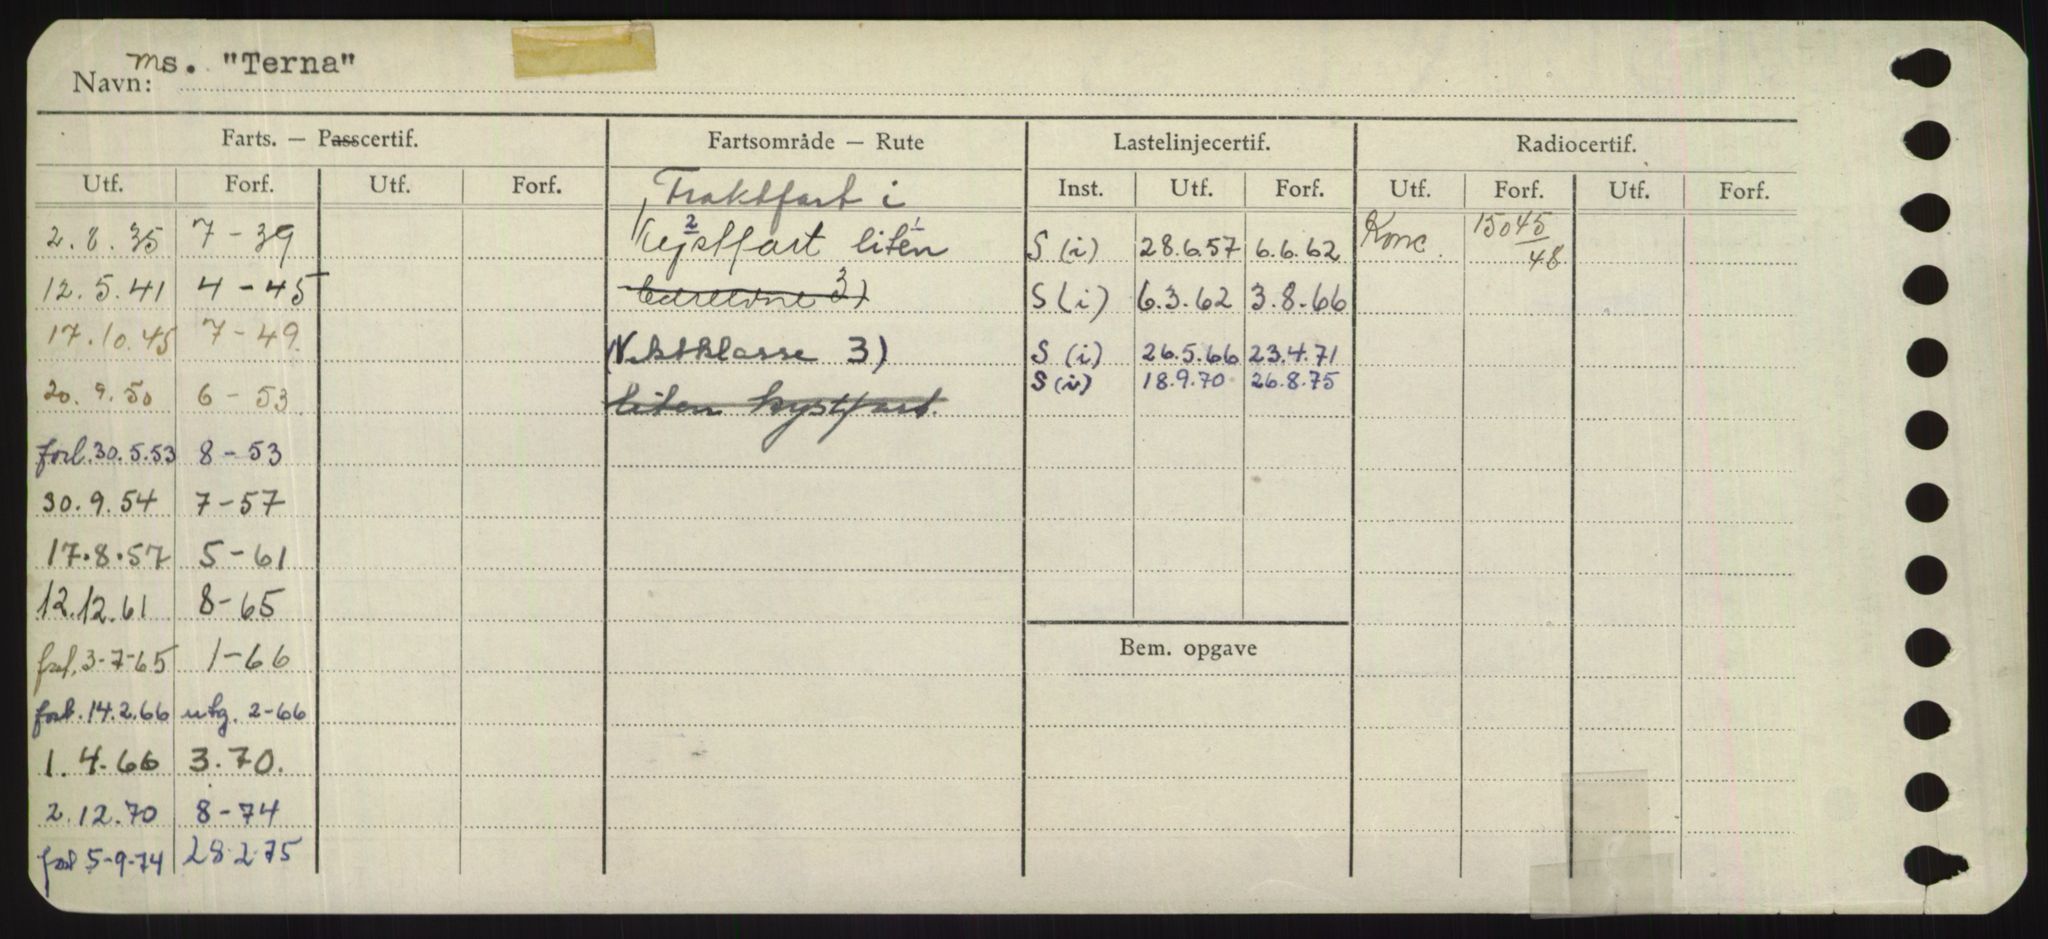 Navn: ms. "Terna"
Farts. — Passcertif. Fartsområde — Rute Lastelinjecertif. Radiocertif.
Utf. Forf. Utf. Forf. Inst. Utf. Forf. Utf. Forf. Utf. Forf.
Fraktfart i
2.8.35 7-39 Kystfart 2 liten 1 S (i) 28.6.57 6.6.62 Konc. 15045/48
12.5.41 4-45 3) S (i) 6.3.62 3.8.66
17.10.45 7-49 (Vektklasse 3) S (i) 26.5.66 23.4.71
S (i) 18.9.70 26.8.75
20.9.50 6-53 liten kystfart.
forl. 30.5.53 8-53
30.9.54 7-57
17.8.57 5-61
12.12.61 8-65
Bem. opgave
forl. 3-7-65 1-66
forl. 14.2.66 utg. 2-66
1.4.66 3.70.
2.12.70 8-74
forl 5-9-74 28.2.75